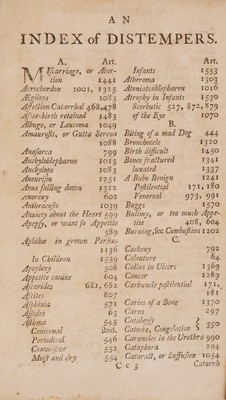 AN
INDEX OF DISTEMPERS.
A. Art.
MIscarriage, or Abor-
tion 1441
Acrochordon 1001, 1325
Ægilops 1083
Affection Catarrhal 468, 478
After-birth retained 1483
Albugo, or Leucoma 1049
Amaurosis, or Gutta Serena
1088
Anasarca 799
Anchyloblepharon 1013
Anchylops
Aneurism 1251
Anus falling down 1322
Anxiety 602
Anthracosis 1039
Anxiety about the Heart 599
Apepsy, or want of Appetite
589
Aphthæ in grown Persons
1136
In Children 1559
Apoplexy 308
Appetite canine 604
Ascarides 681, 682
Ascites 807
Asphixia 571
Assides 63
Asthma 545
Continual ibid.
Periodical 546
Convulsive 552
Moist and dry 554
Art.
Infants 1533
Atheroma 1303
Atoniatonblepharon 1016
Atrophy in Infants 1530
Scorbutic 527, 872, 879
of the Eye 1070
B.
Biting of a mad Dog 444
Bronchocele 1320
Birth difficult 1450
Bones fractured 1341
luxated 1337
A Bubo Benign 1241
Pestilential 171, 180
Venereal 973, 991
Bugs 1570
Bulimy, or too much Appe-
tite 408, 604
Burning, see Combustion 1202
C.
Cachexy 792
Calenture 64
Callus in Ulcers 1369
Cancer 1289
Carbuncle pestilential 171,
181
Caries of a Bone 1370
Carus 297
Catalepsy
Catoche, Congelation } 350
Caruncles in the Urethra 990
Cataphora 294
Cataract, or Suffusion 1054
Cc3 Catarrh